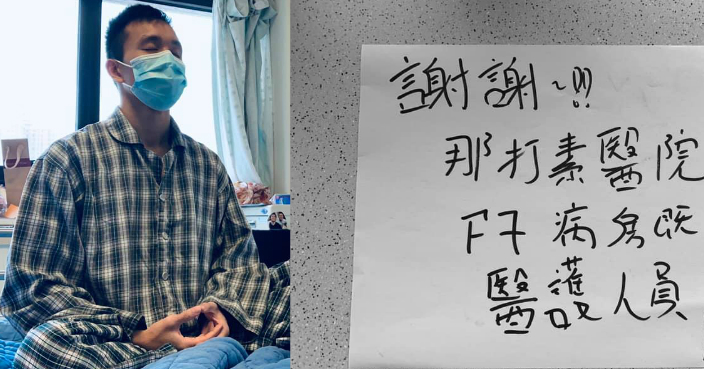 謝謝~!!
那打素醫院
F7病房既
醫護人員